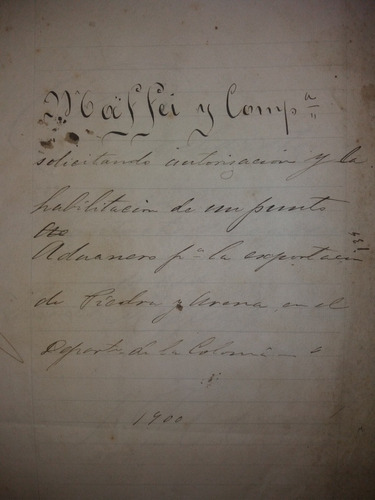 Maffei y Compª
solicitando autorizacion y la
habilitacion de un punto
Aduanero pª la exportacion
de Piedra y Arena en el
Departº de la Colonia
1900